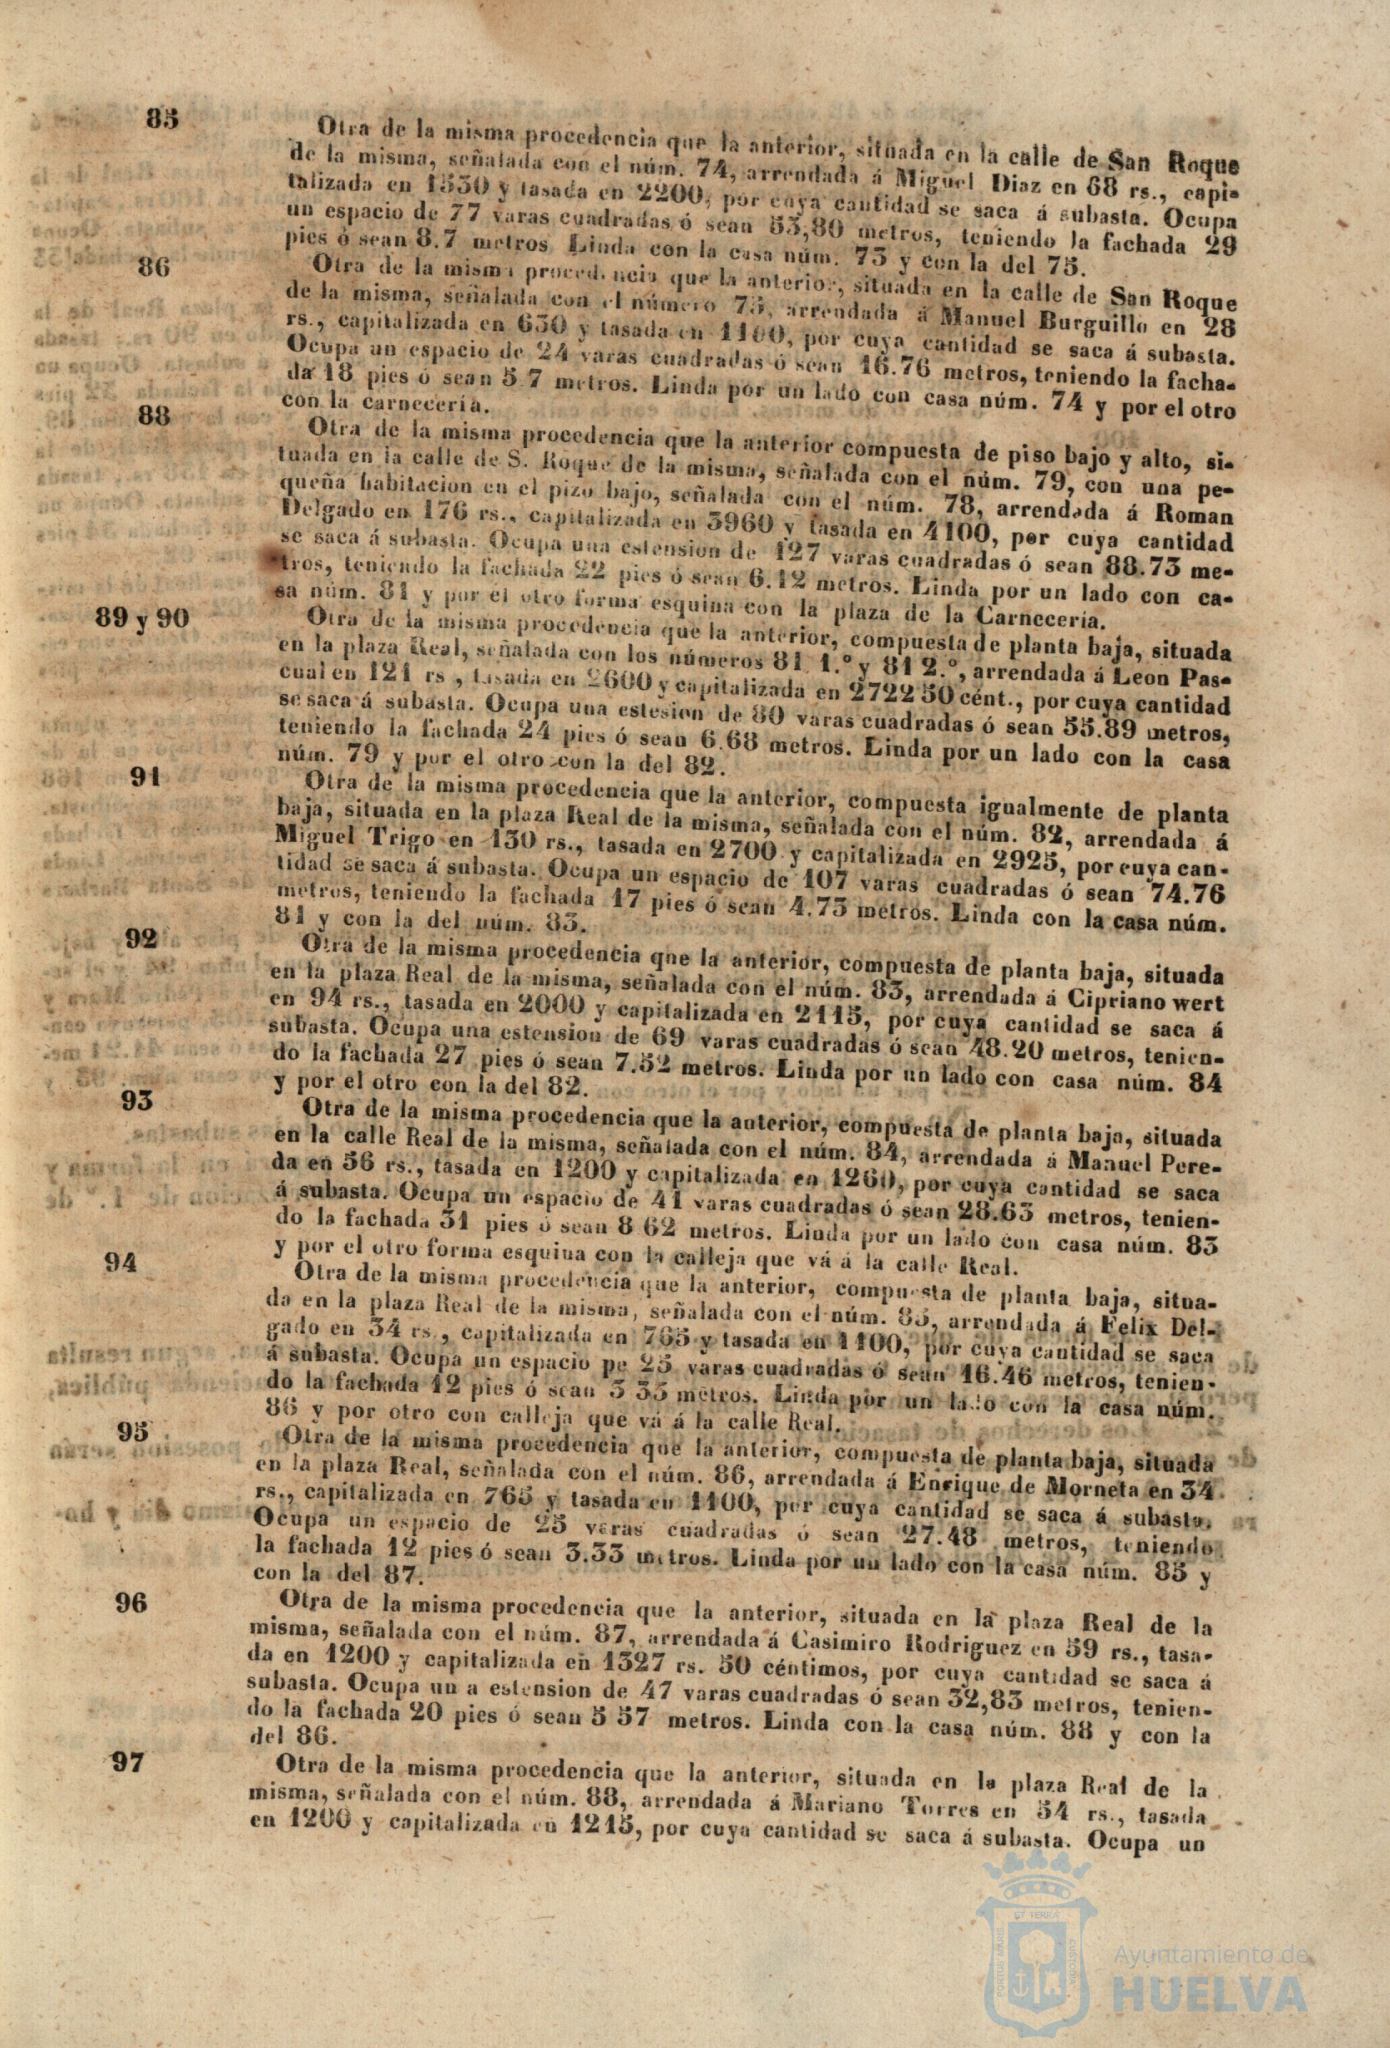 85
Otra de la misma procedencia que la anterior, situada en la calle de San Roque
de la misma, señalada con el núm. 74, arrendada á Miguel Diaz en 68 rs., capi-
talizada en 1530 y tasada en 2200, por cuya cantidad se saca á subasta. Ocupa
un espacio de 77 varas cuadradas ó sean 53,80 metros, teniendo la fachada 29
pies ó sean 8.7 metros Linda con la casa núm. 73 y con la del 75.
86
Otra de la misma procedencia que la anterior, situada en la calle de San Roque
de la misma, señalada con el número 75, arrendada á Manuel Burguillo en 28
rs., capitalizada en 630 y tasada en 1100, por cuya cantidad se saca á subasta.
Ocupa un espacio de 24 varas cuadradas ó sean 16.76 metros, teniendo la facha-
da 18 pies ó sean 5 7 metros. Linda por un lado con casa núm. 74 y por el otro
con la carnecería.
88
Otra de la misma procedencia que la anterior compuesta de piso bajo y alto, si-
tuada en la calle de S. Roque de la misma, señalada con el núm. 79, con una pe-
queña habitacion en el pizo bajo, señalada con el núm. 78, arrendada á Roman
Delgado en 176 rs., capitalizada en 3960 y tasada en 4100, por cuya cantidad
se saca á subasta. Ocupa una estension de 127 varas cuadradas ó sean 88.73 me-
tros, teniendo la fachada 22 pies ó sean 6.12 metros. Linda por un lado con ca-
sa núm. 81 y por el otro forma esquina con la plaza de la Carnecería.
89 y 90
Otra de la misma procedencia que la anterior, compuesta de planta baja, situada
en la plaza Real, señalada con los números 81 1.º y 81 2.º, arrendada á Leon Pas-
cual en 121 rs , tasada en 2600 y capitalizada en 2722 50 cént., por cuya cantidad
se saca á subasta. Ocupa una estesion de 80 varas cuadradas ó sean 55.89 metros,
teniendo la fachada 24 pies ó sean 6.68 metros. Linda por un lado con la casa
núm. 79 y por el otro con la del 82.
91
Otra de la misma procedencia que la anterior, compuesta igualmente de planta
baja, situada en la plaza Real de la misma, señalada con el núm. 82, arrendada á
Miguel Trigo en 130 rs., tasada en 2700 y capitalizada en 2925, por cuya can-
tidad se saca á subasta. Ocupa un espacio de 107 varas cuadradas ó sean 74.76
metros, teniendo la fachada 17 pies ó sean 4.73 metros. Linda con la casa núm.
81 y con la del núm. 83.
92
Otra de la misma procedencia que la anterior, compuesta de planta baja, situada
en la plaza Real de la misma, señalada con el núm. 83, arrendada á Cipriano wert
en 94 rs., tasada en 2000 y capitalizada en 2115, por cuya cantidad se saca á
subasta. Ocupa una estension de 69 varas cuadradas ó sean 48.20 metros, tenien-
do la fachada 27 pies ó sean 7.52 metros. Linda por un lado con casa núm. 84
y por el otro con la del 82.
93
Otra de la misma procedencia que la anterior, compuesta de planta baja, situada
en la calle Real de la misma, señalada con el núm. 84, arrendada á Manuel Pere-
da en 56 rs., tasada en 1200 y capitalizada en 1260, por cuya cantidad se saca
á subasta. Ocupa un espacio de 41 varas cuadradas ó sean 28.63 metros, tenien-
do la fachada 31 pies ó sean 8 62 metros. Linda por un lado con casa núm. 83
y por el otro forma esquina con la calleja que vá á la calle Real.
94
Otra de la misma procedencia que la anterior, compuesta de planta baja, situa-
da en la plaza Real de la misma, señalada con el núm. 85, arrendada á Felix Del-
gado en 34 rs., capitalizada en 765 y tasada en 1100, por cuya cantidad se saca
á subasta. Ocupa un espacio pe 25 varas cuadradas ó sean 16.46 metros, tenien-
do la fachada 12 pies ó sean 3 33 metros. Linda por un lado con la casa núm.
86 y por otro con calleja que vá á la calle Real.
95
Otra de la misma procedencia que la anterior, compuesta de planta baja, situada
en la plaza Real, señalada con el núm. 86, arrendada á Enrique de Morneta en 34
rs., capitalizada en 765 y tasada en 1100, por cuya cantidad se saca á subasta.
Ocupa un espacio de 25 varas cuadradas ó sean 27.48 metros, teniendo
la fachada 12 pies ó sean 3.33 metros. Linda por un lado con la casa núm. 85 y
con la del 87.
96
Otra de la misma procedencia que la anterior, situada en la plaza Real de la
misma, señalada con el núm. 87, arrendada á Casimiro Rodriguez en 59 rs., tasa-
da en 1200 y capitalizada en 1327 rs. 50 céntimos, por cuya cantidad se saca á
subasta. Ocupa un a estension de 47 varas cuadradas ó sean 32,83 metros, tenien-
do la fachada 20 pies ó sean 5 57 metros. Linda con la casa núm. 88 y con la
del 86.
97
Otra de la misma procedencia que la anterior, situada en la plaza Real de la
misma, señalada con el núm. 88, arrendada á Mariano Torres en 54 rs., tasada
en 1200 y capitalizada en 1215, por cuya cantidad se saca á subasta. Ocupa un
Ayuntamiento de
HUELVA